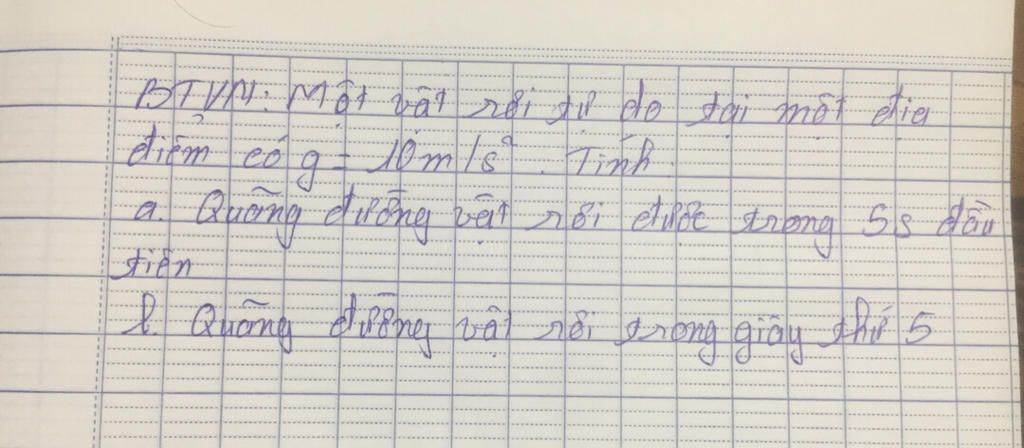 BTVN: Một vật rơi tự do tại một địa
điểm có g = 10m/s². Tính
a. Quãng đường vật rơi được trong 5s đầu
tiên
b. Quãng đường vật rơi trong giây thứ 5